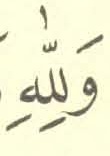 وَلِلّٰهِ